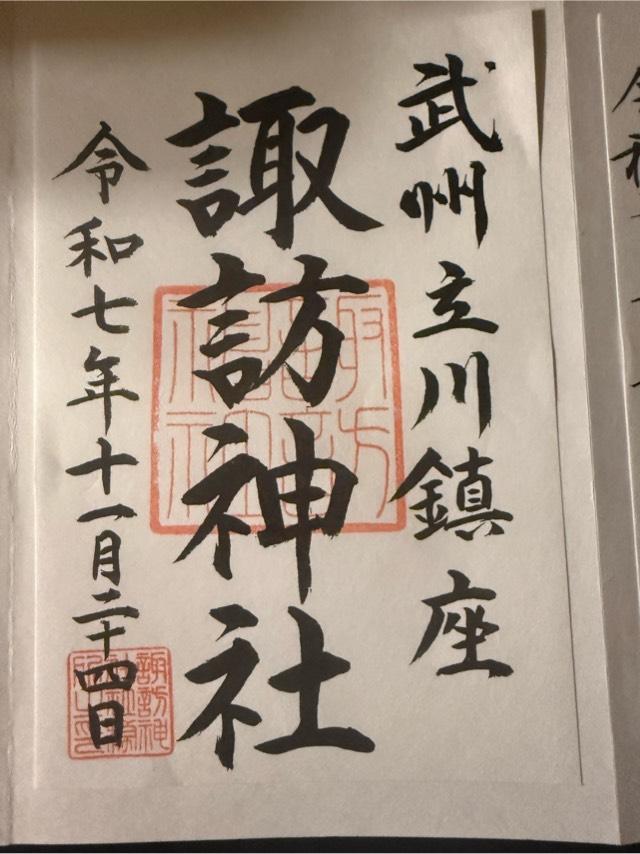 武州立川鎮座
諏訪神社
令和七年十一月二十四日
諏訪神社